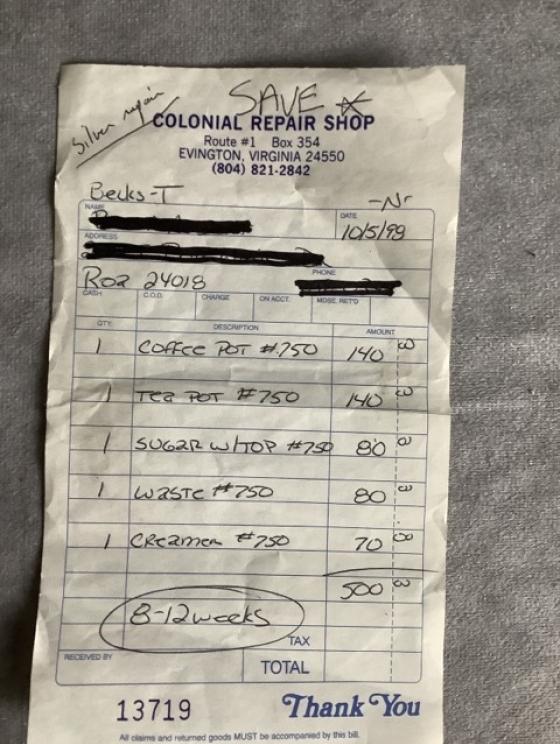 SAVE
Silver repair
COLONIAL REPAIR SHOP
Route #1 Box 354
EVINGTON, VIRGINIA 24550
(804) 821-2842
Becks-T
NAME
DATE
10/5/99
ADDRESS
Roa 24018
PHONE
CASH C.O.D. CHARGE ON ACCT. MDSE. RET'D
QTY. DESCRIPTION AMOUNT
1 COFFEE POT #750 140 00
1 Tea POT #750 140 00
1 SUGAR W/TOP #750 80 00
1 WASTE #750 80 00
1 Creamer #750 70 00
500 00
8-12 weeks
TAX
RECEIVED BY
TOTAL
13719 Thank You
All claims and returned goods MUST be accompanied by this bill.